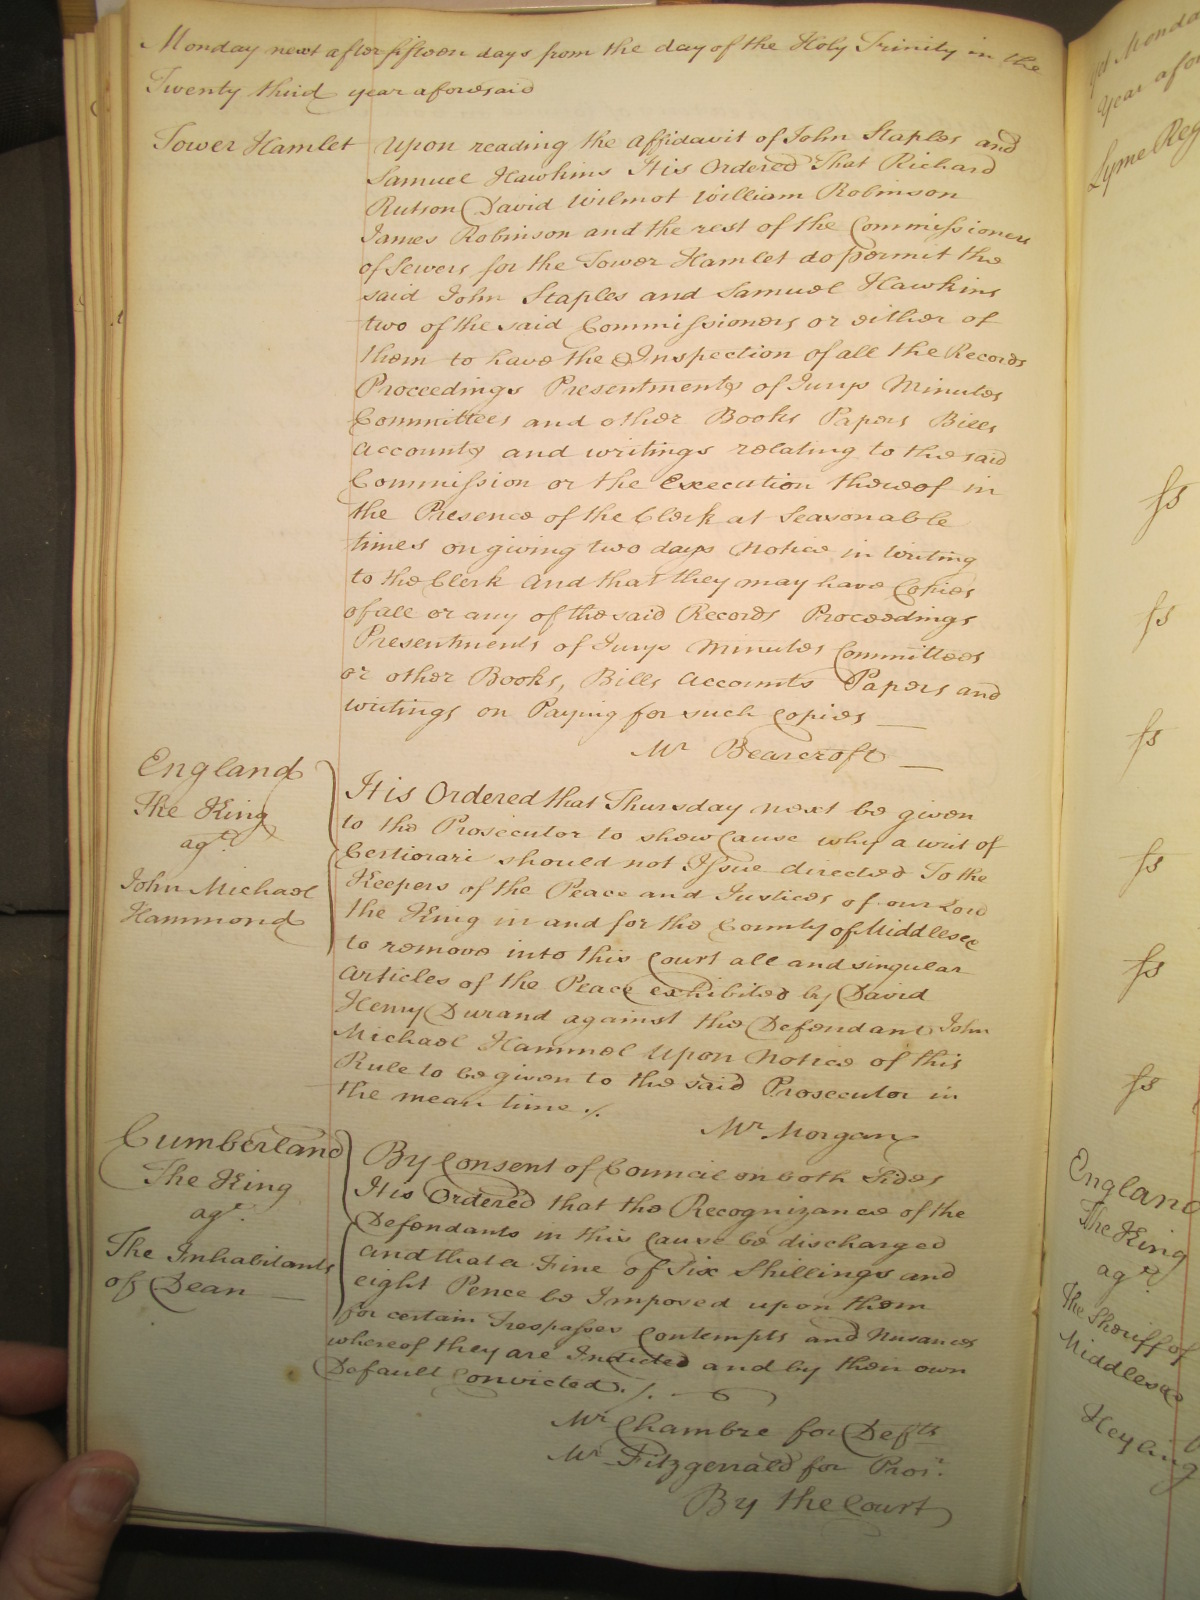 Monday next after fifteen days from the day of the Holy Trinity in the
Twenty third year aforesaid
Tower Hamlet Upon reading the affidavit of John Staples and
Samuel Hawkins It is Ordered That Richard
Rutson David Wilmot William Robinson
James Robinson and the rest of the Commissioners
of Sewers for the Tower Hamlet do permit the
said John Staples and Samuel Hawkins
two of the said Commissioners or either of
them to have the Inspection of all the Records
Proceedings Presentments of Jurys Minutes
Committees and other Books Papers Bills
accounts and writings relating to the said
Commission or the Execution thereof in
the Presence of the Clerk at Seasonable
times on giving two days Notice in Writing
to the Clerk and that they may have Copies
of all or any of the said Records Proceedings
Presentments of Jurys Minutes Committees
or other Books, Bills accounts Papers and
writings on Paying for such Copies
Mr Bearcroft
England
The King
agt
John Michael
Hammond
It is Ordered that Thursday next be given
to the Prosecutor to shew Cause why a writ of
Certiorari should not Issue directed To the
Keepers of the Peace and Justices of our Lord
the King in and for the County of Middlesex
to remove into this Court all and singular
articles of the Peace exhibited by David
Henry Durand against the Defendant John
Michael Hammel Upon Notice of this
Rule to be given to the said Prosecutor in
the mean time ./.
Mr Morgan
Cumberland
The King
agt
The Inhabitants
of Dean
By Consent of Council on both Sides
It is Ordered that the Recognizance of the
Defendants in this Cause be discharged
and that a Fine of Six Shillings and
eight Pence be Imposed upon them
for certain Trespasses Contempts and Nusances
whereof they are Indicted and by their own
Default Convicted ./.
Mr Chambre for Defts
Mr Fitzgerrald for Pror.
By the Court
Year afor
Lyme Reg
fs
fs
fs
fs
fs
fs
England
The King
agt
The Sheriff of
Middlesex
Heyling